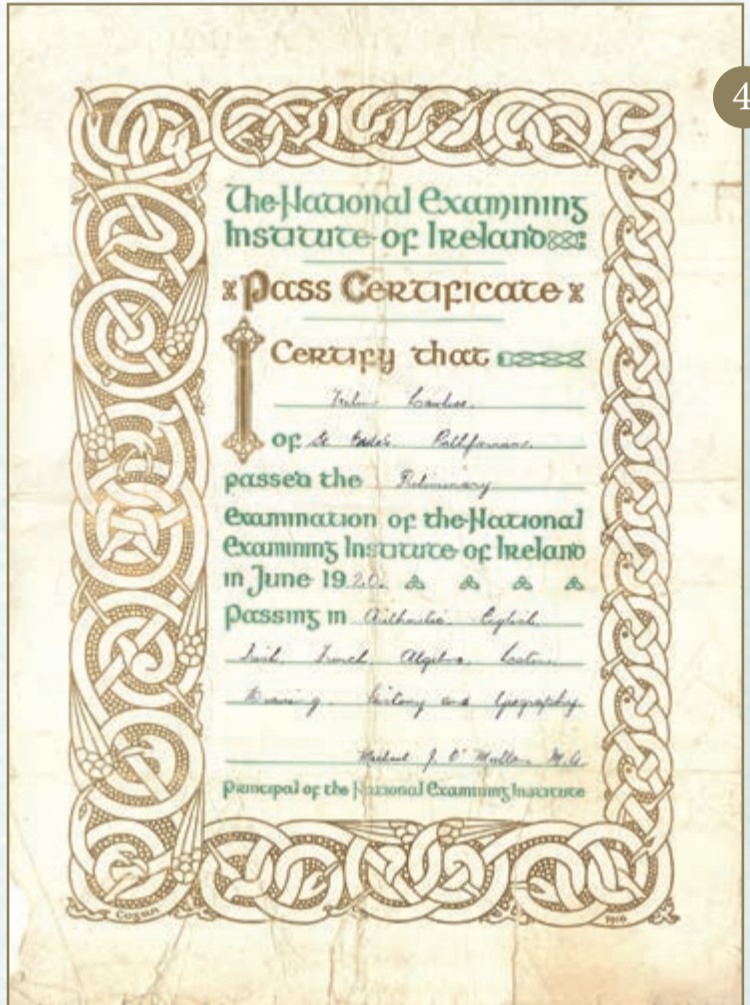 4
The National Examining
Institute of Ireland
Pass Certificate
I Certify that
of St Rathfarnham.
passed the Preliminary
Examination of the National
Examining Institute of Ireland
in June 1920.
Passing in Arithmetic English
Irish French Algebra
Drawing. History and Geography
Michael J. O' M.A
Principal of the National Examining Institute
1916